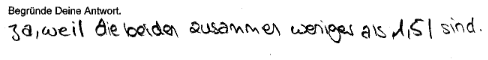 Begründe Deine Antwort.
Ja, weil die beiden zusammen weniger als 1,5 l sind.